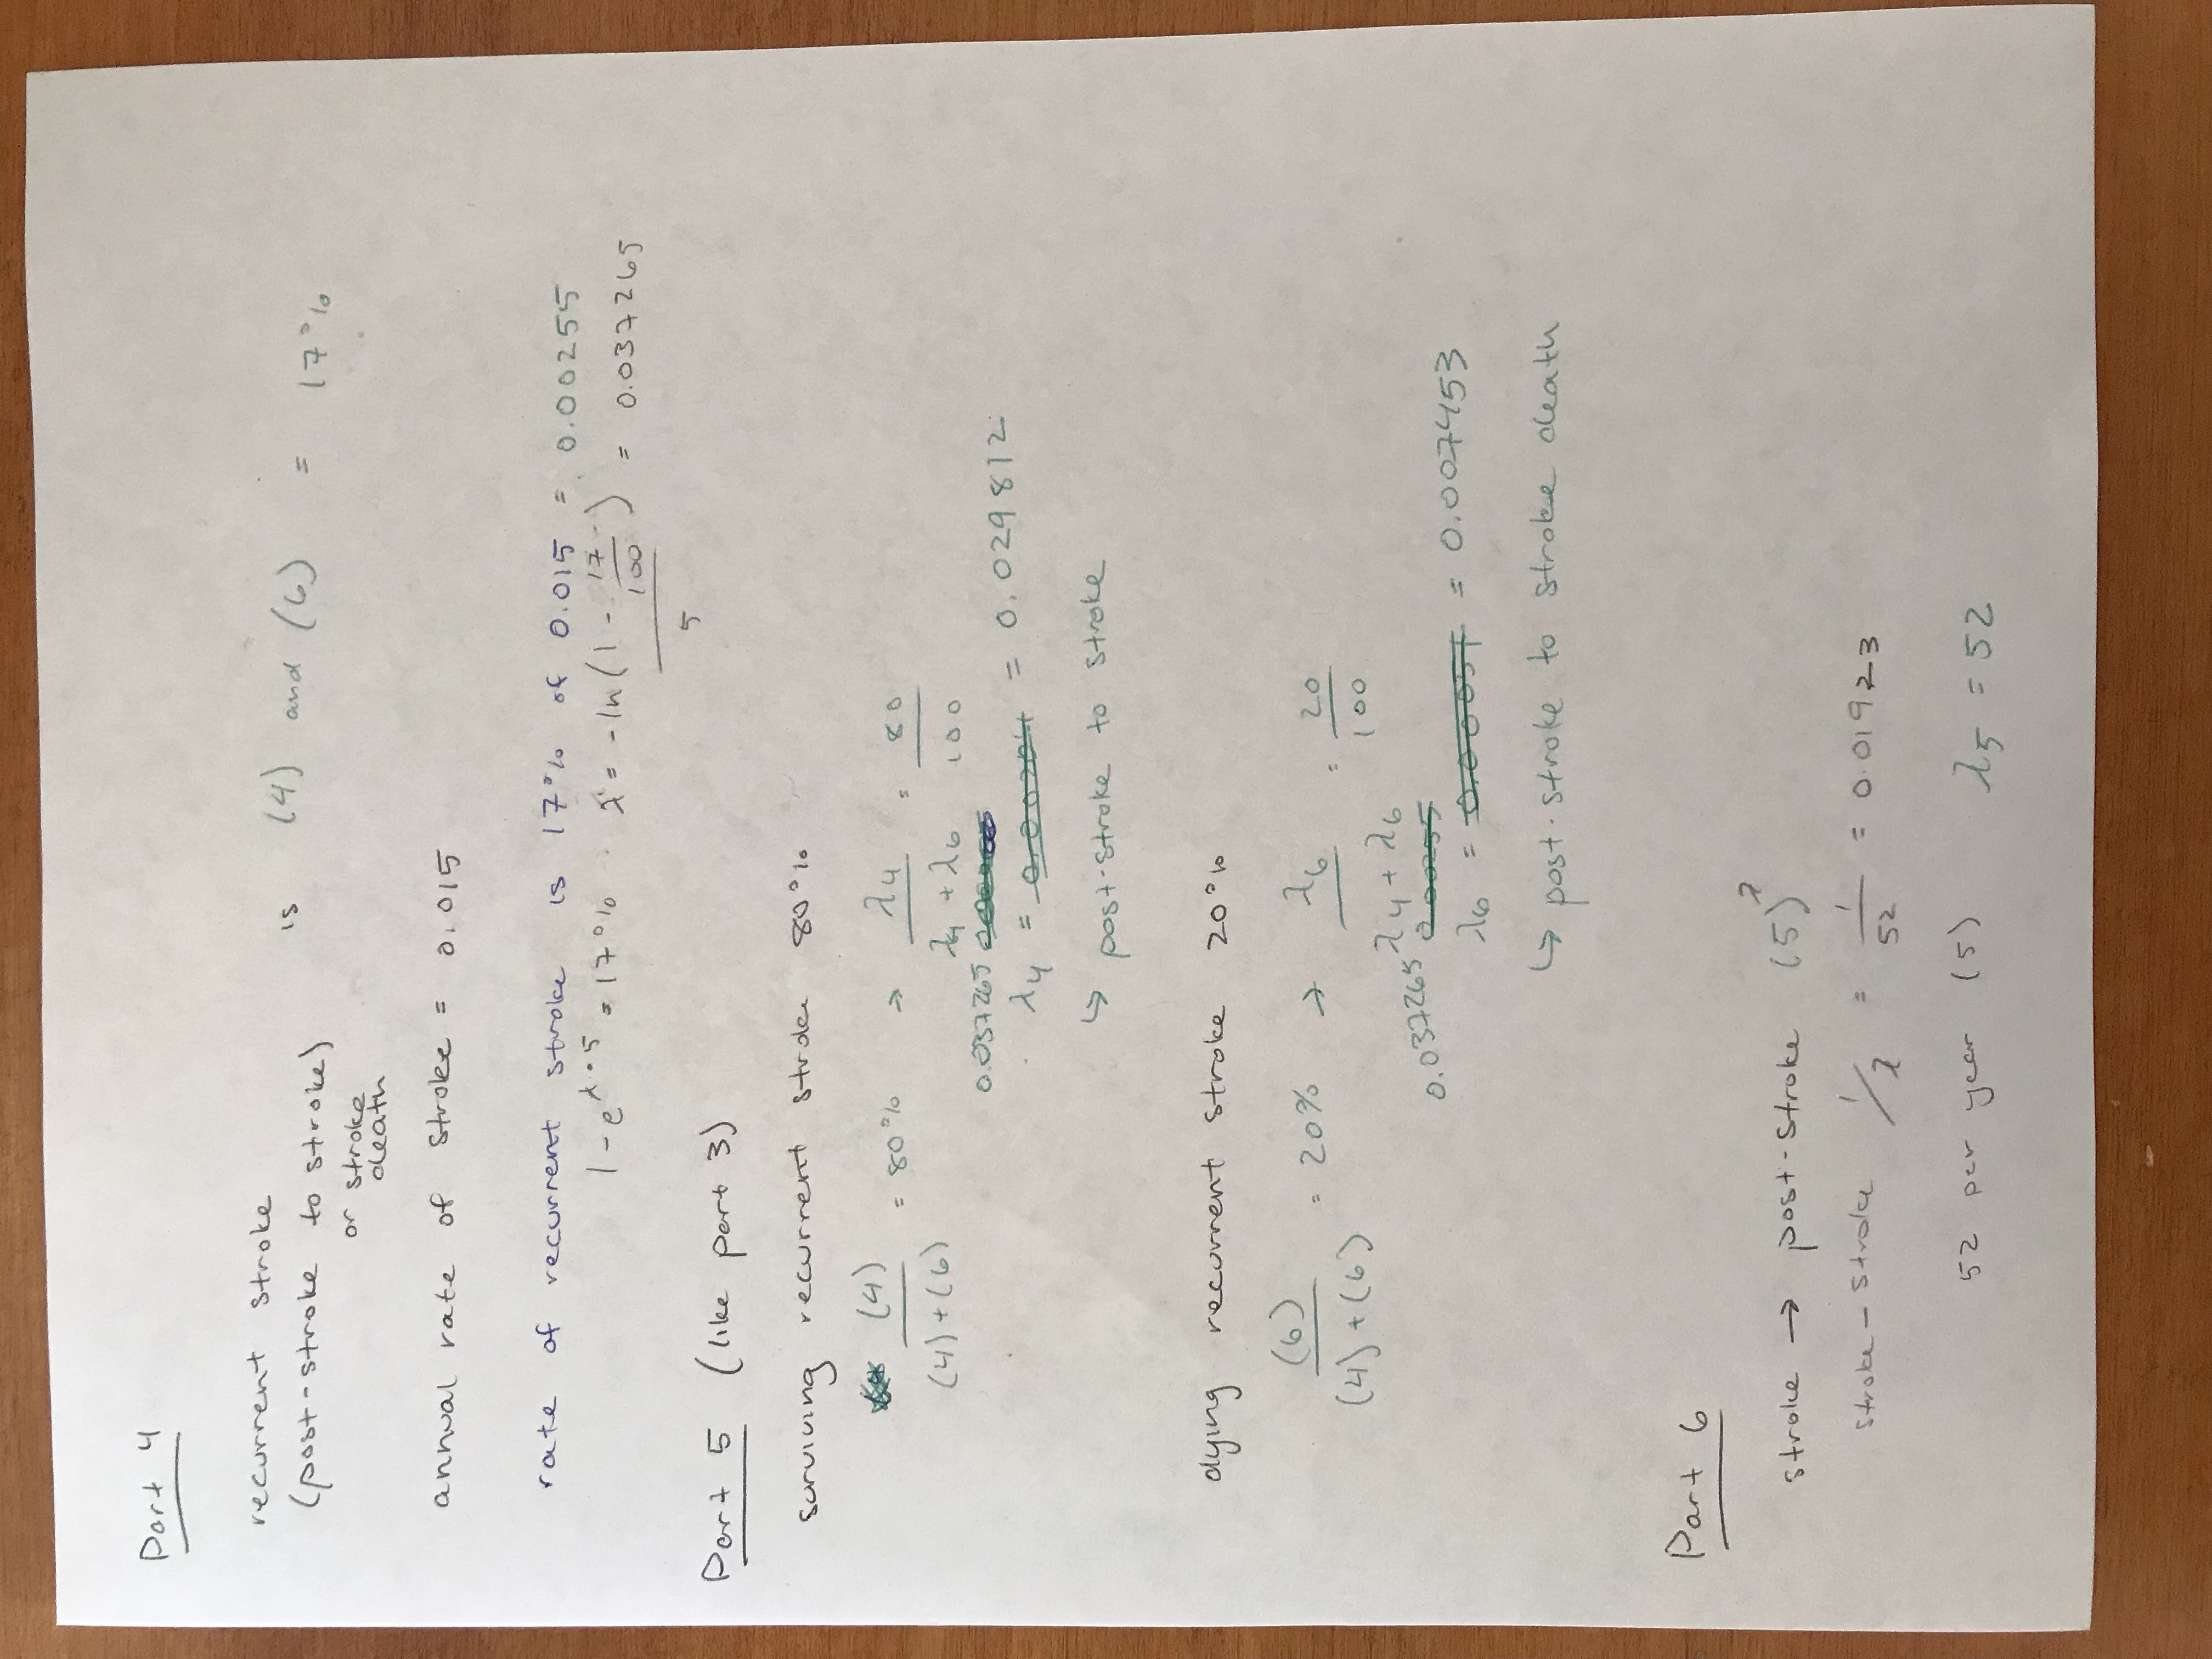 Part 4
recurrent stroke
(post-stroke to stroke) is (4) and (6) = 17%
or stroke
death
annual rate of stroke = 0.015
rate of recurrent stroke is 17% of 0.015 = 0.00255
1 - e^λ·5 = 17% λ = -ln(1 - 17/100) / 5 = 0.037265
Part 5 (like part 3)
surviving recurrent stroke 80%
(4) / (4)+(6) = 80% → λ4 / λ4 + λ6 = 80/100
0.037265
λ4 = 0.00204 = 0.029812
↳ post-stroke to stroke
dying recurrent stroke 20%
(6) / (4)+(6) = 20% → λ6 / λ4 + λ6 = 20/100
0.037265 0.00255
λ6 = 0.00051 = 0.007453
↳ post-stroke to stroke death
Part 6
stroke → post-stroke (5) λ
stroke - stroke 1/λ = 1/52 = 0.01923
52 per year (5) λ5 = 52